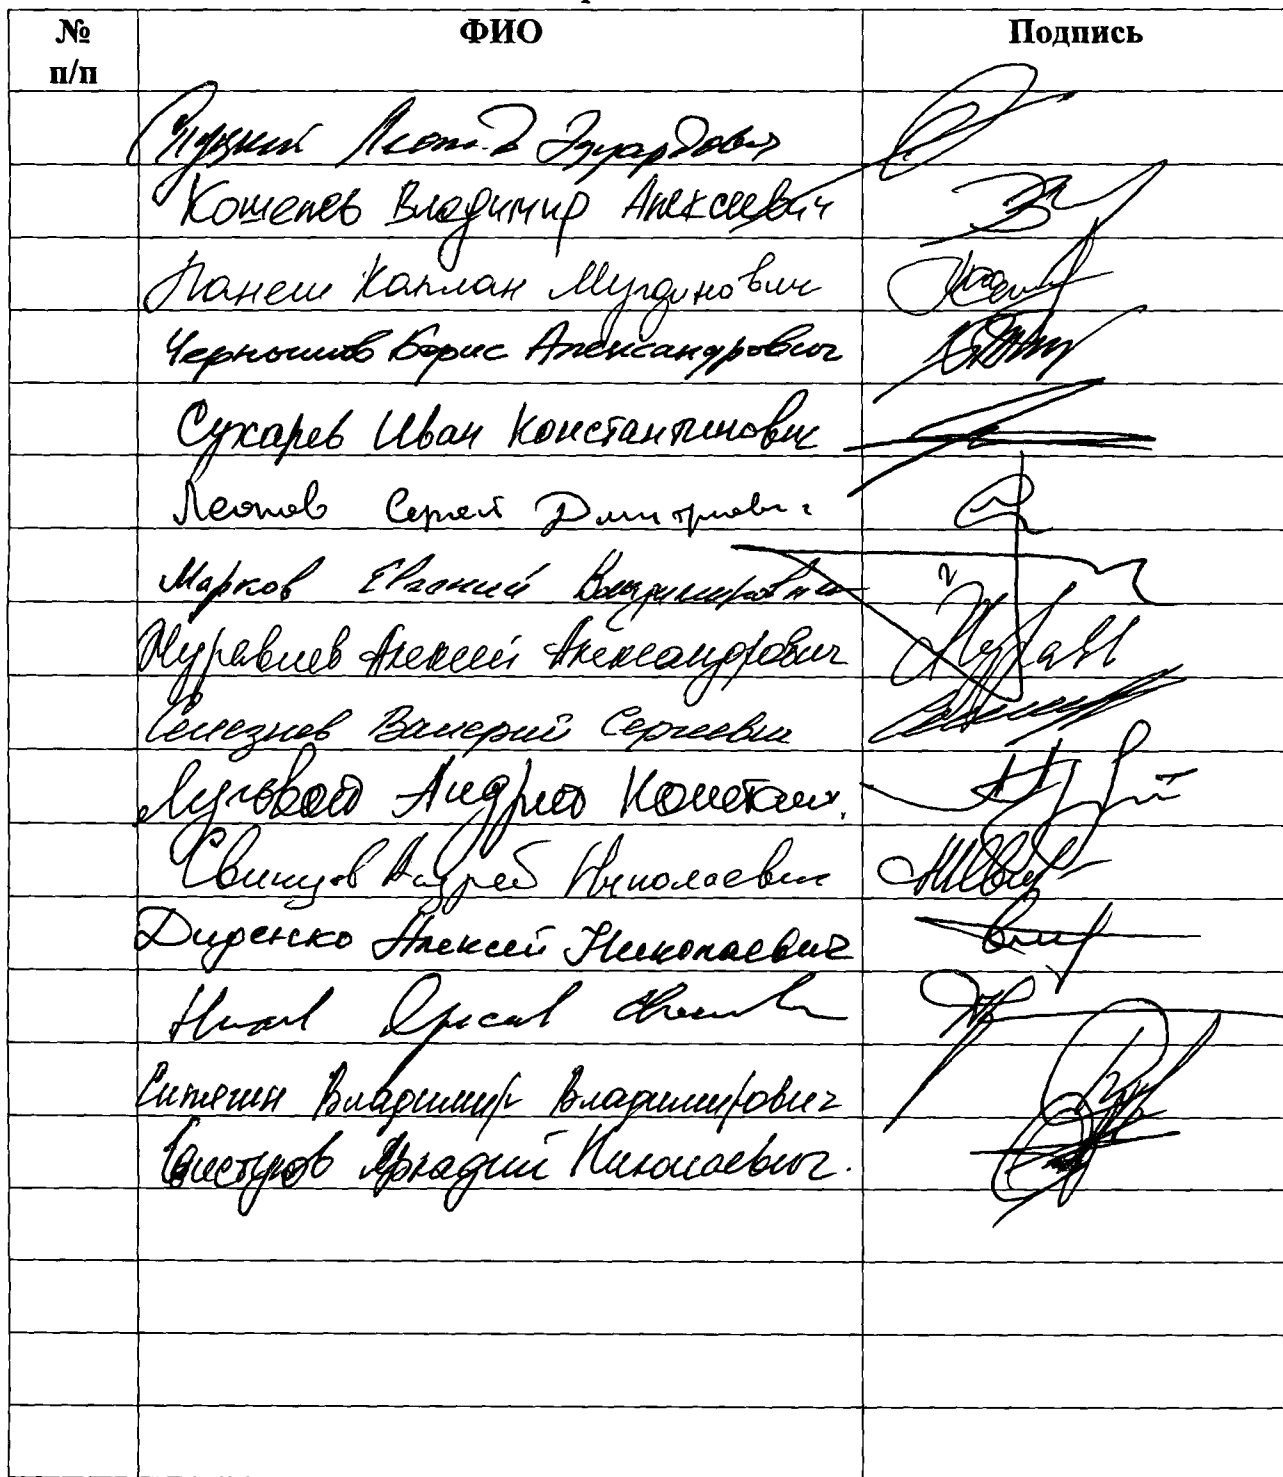 № п/п ФИО Подпись
Слуцкий Леонид Эдуардович
Кошелев Владимир Алексеевич
Панеш Каплан Мугдинович
Чернышов Борис Александрович
Сухарев Иван Константинович
Леонов Сергей Дмитриевич
Марков Евгений Владимирович
Журавлев Алексей Александрович
Селезнев Валерий Сергеевич
Луговой Андрей Констант.
Свинцов Андрей Николаевич
Диденко Алексей Николаевич
Нилов
Сипягин Владимир Владимирович
Свистунов Аркадий Николаевич.